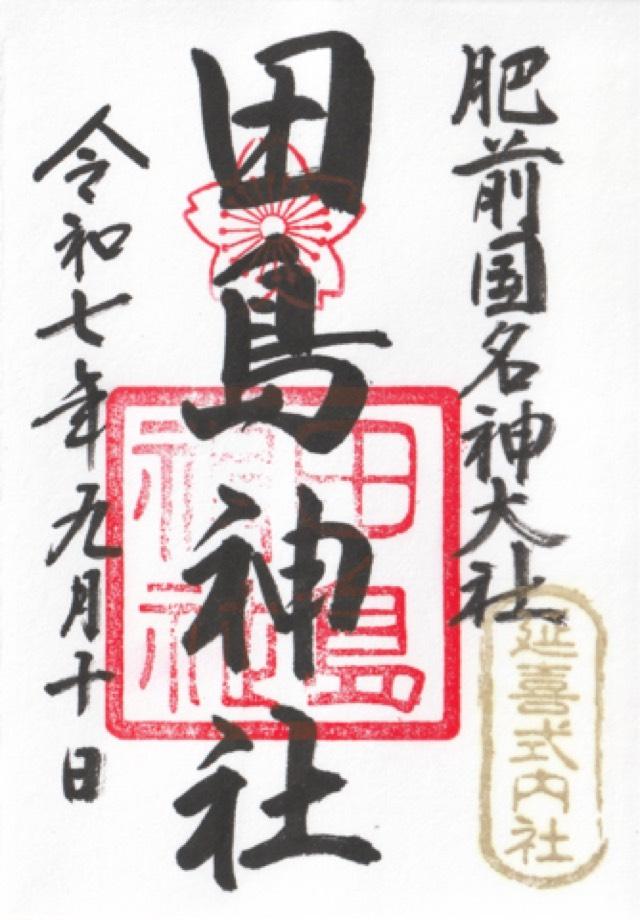 肥前国名神大社
延喜式内社
田島神社
田島
神社
令和七年九月十日